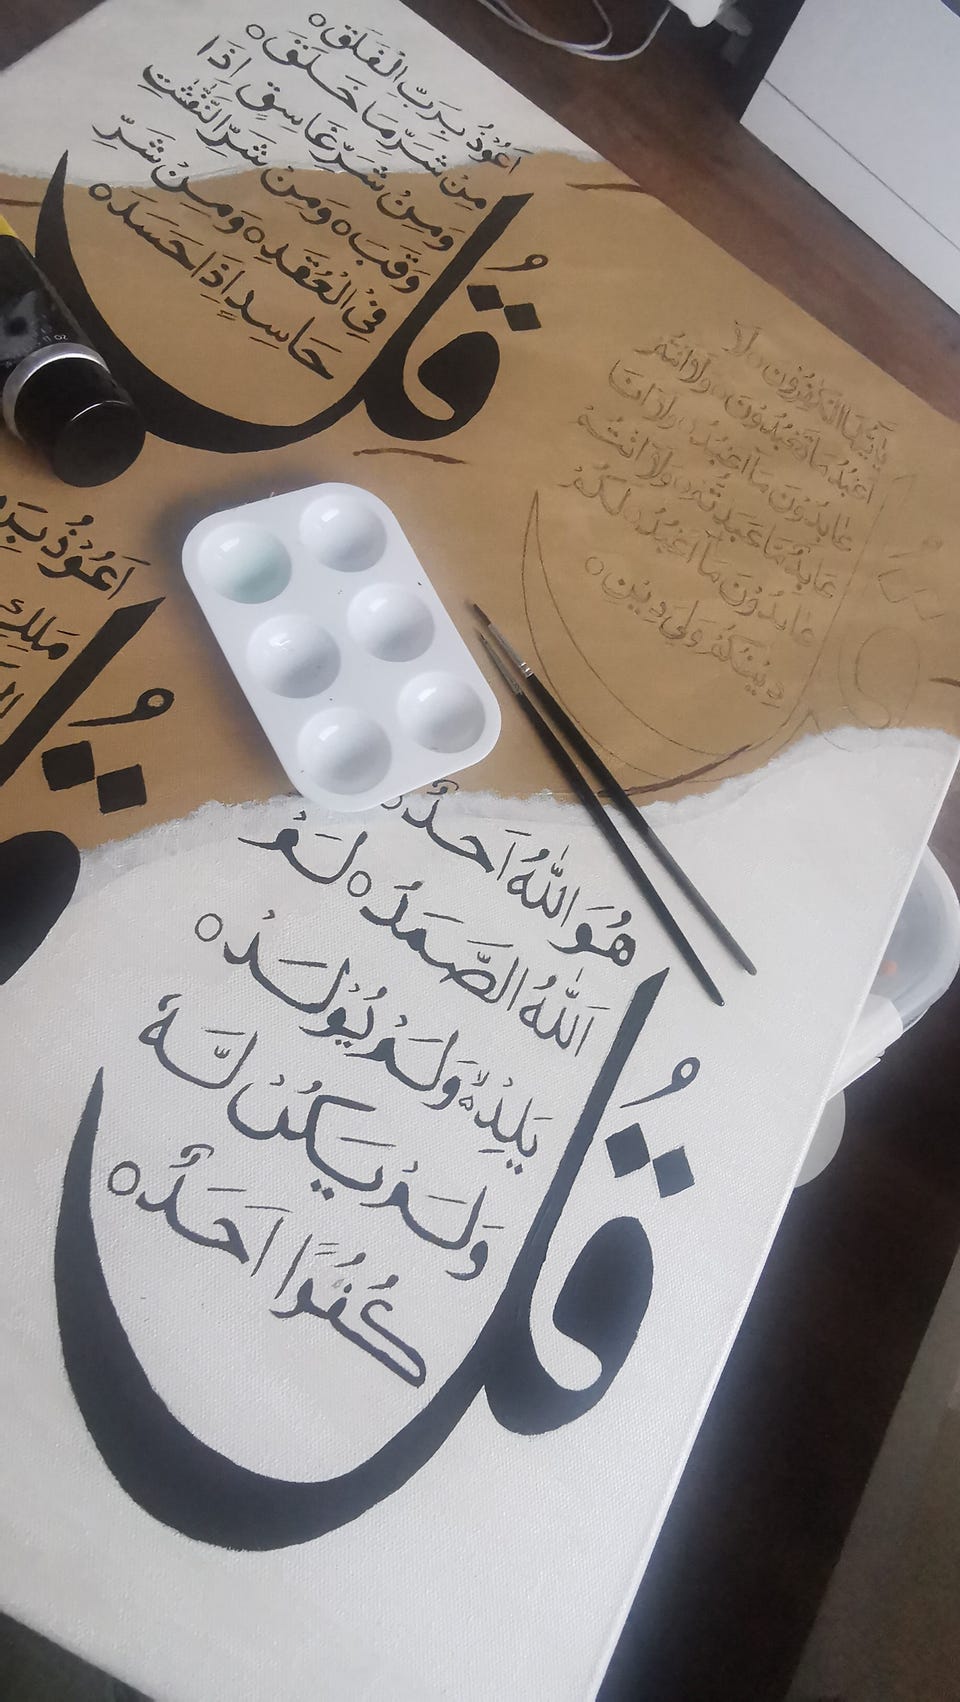 قُل
اَعُوْذُ بِرَبِّ الْفَلَقِ ٥
مِنْ شَرِّ مَا خَلَقَ ٥
وَمِنْ شَرِّ غَاسِقٍ اِذَا
وَقَبَ ٥ وَمِنْ شَرِّ النَّفّٰثٰتِ
فِى الْعُقَدِ ٥ وَمِنْ شَرِّ
حَاسِدٍ اِذَا حَسَدَ ٥
يٰٓاَيُّهَا الْكٰفِرُوْنَ ٥ لَا
اَعْبُدُ مَا تَعْبُدُوْنَ ٥ وَلَا اَنْتُمْ
عٰبِدُوْنَ مَا اَعْبُدُ ٥ وَلَا اَنَا
عَابِدٌ مَّا عَبَدْتُّمْ ٥ وَلَا اَنْتُمْ
عٰبِدُوْنَ مَآ اَعْبُدُ ٥ لَكُمْ
دِيْنُكُمْ وَلِيَ دِيْنِ ٥
قُل
اَعُوْذُ بِرَ
مَلِكِ
قُل
هُوَ اللّٰهُ اَحَدٌ
اَللّٰهُ الصَّمَدُ ٥ لَمْ
يَلِدْ ٥ وَلَمْ يُوْلَدْ ٥
وَلَمْ يَكُنْ لَّهٗ
كُفُوًا اَحَدٌ ٥